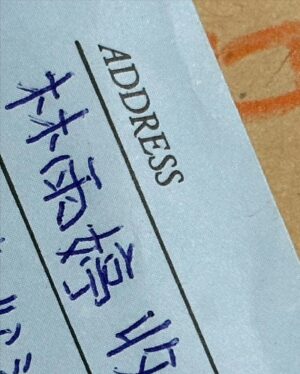 ADDRESS
林雨婷 收